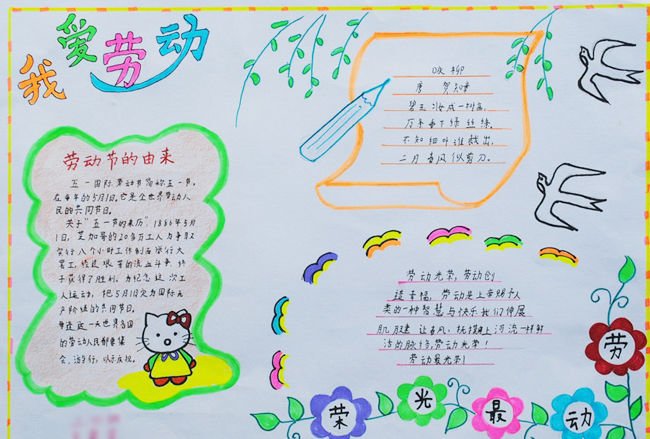 我爱劳动
劳动节的由来
五一国际劳动节简称五一节,
在每年的5月1日,它是全世界劳动人
民的共同节日。
关于"五一节的来历",1886年5月
1日,芝加哥的20多万工人为争取
实行八个小时工作制而举行大
罢工,经过艰苦的流血斗争,终
于获得了胜利。为纪念这次工
人运动,把5月1日定为国际无
产阶级的共同节日。
在这一天世界各国
的劳动人民都要集
会,游行,以示庆祝。
咏柳
唐 贺知章
碧玉妆成一树高,
万条垂下绿丝绦。
不知细叶谁裁出,
二月春风似剪刀。
劳让光荣,劳动创
造幸福,劳动是上帝赐予人
类的一种智慧与快乐我们伸展
肌腱,让春风,抚摸上河流一样鲜
活的脉络,劳动光荣!
劳动最光荣!
劳
动
最
光
荣